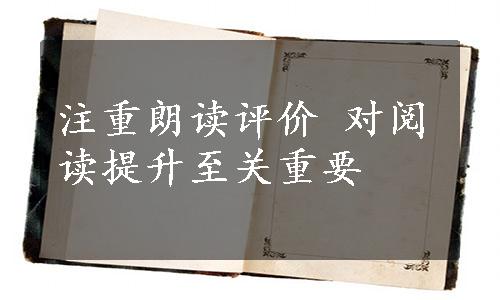 注重朗读评价 对阅
读提升至关重要